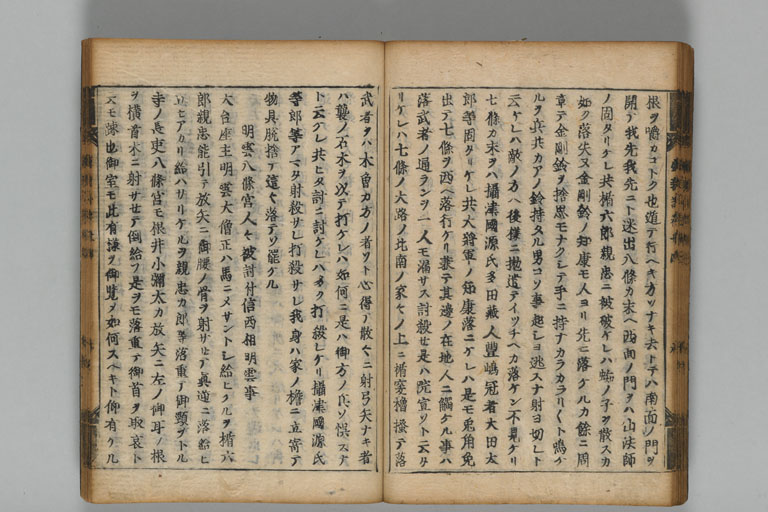 根ヲ嚼カコトク也逃テ行ヘキ方ソナキ去トテハ南面ノ門ヲ
開テ我先我先ニト迷出八條カ末ヘ西面ノ門ヲハ山法師
ノ固タリケレ共楯六郎親忠ニ被破ケレハ蛛ノ子ヲ散スカ
如ク落失ヌ金剛鈴ノ知康モ人ヨリ先ニ落ケルカ餘ニ周
章テ金剛鈴ヲ捨思モナクシテ手ニ持ナカラカラリくト鳴ケ
ルヲ兵共カアノ鈴持タル男コソ事起シヨ迯スナ射ヨ切レト
云ケレハ敵ノ方ヘ後様ニ抛遣テイツチヘカ落ケン不見ケリ
七條カ末ヲハ攝津國源氏多田藏人豊嶋冠者大田太
郎等固タリケレ共大將軍ノ知康落ニケレハ是モ兎角免
出テ七條ヲ西ヘ落行ケリ兼テ其邊ノ在地人ニ觸ケル事ハ
落武者ノ通ランヲ一人モ漏サス討殺セ是ハ院宣ソト云タ
リケレハ七條ノ大路ノ北南ノ家々ノ上ニ楯突櫓搔テ落
武者ヲハ木曽カ方ノ者ソト心得テ散くニ射弓矢ナキ者
ハ襲ノ石木ヲ以テ打ケレハ如何ニ是ハ御方ノ兵ソ悞スナ
ト云ケレ共ヒタ討ニ討ケレハ多ク打殺レケリ攝津國源氏
等郎等アマタ射殺サレ打殺サレ我身ハ家ノ檐ニ立寄テ
物具脱捨テ這くソ落テソ罷ケル
明雲八條宮人々被討付信西相明雲事
天台座主明雲大僧正ハ馬ニメサントシ給ヒケルヲ楯六
郎親忠能引テ放矢ニ御腰ノ骨ヲ射サセテ真逆ニ落給ヒ
立モアカリ給ハサリケルヲ親忠カ郎等落重テ御頸ヲトル
寺ノ長吏八條宮モ根井小彌太カ放矢ニ左ノ御耳ノ根
ヲ横首木ニ射サセテ倒給フ是ヲモ落重テ御首ヲ取哀ト
云モ疎也御室モ此有様ヲ御覧メ如何スヘキト仰有ケル